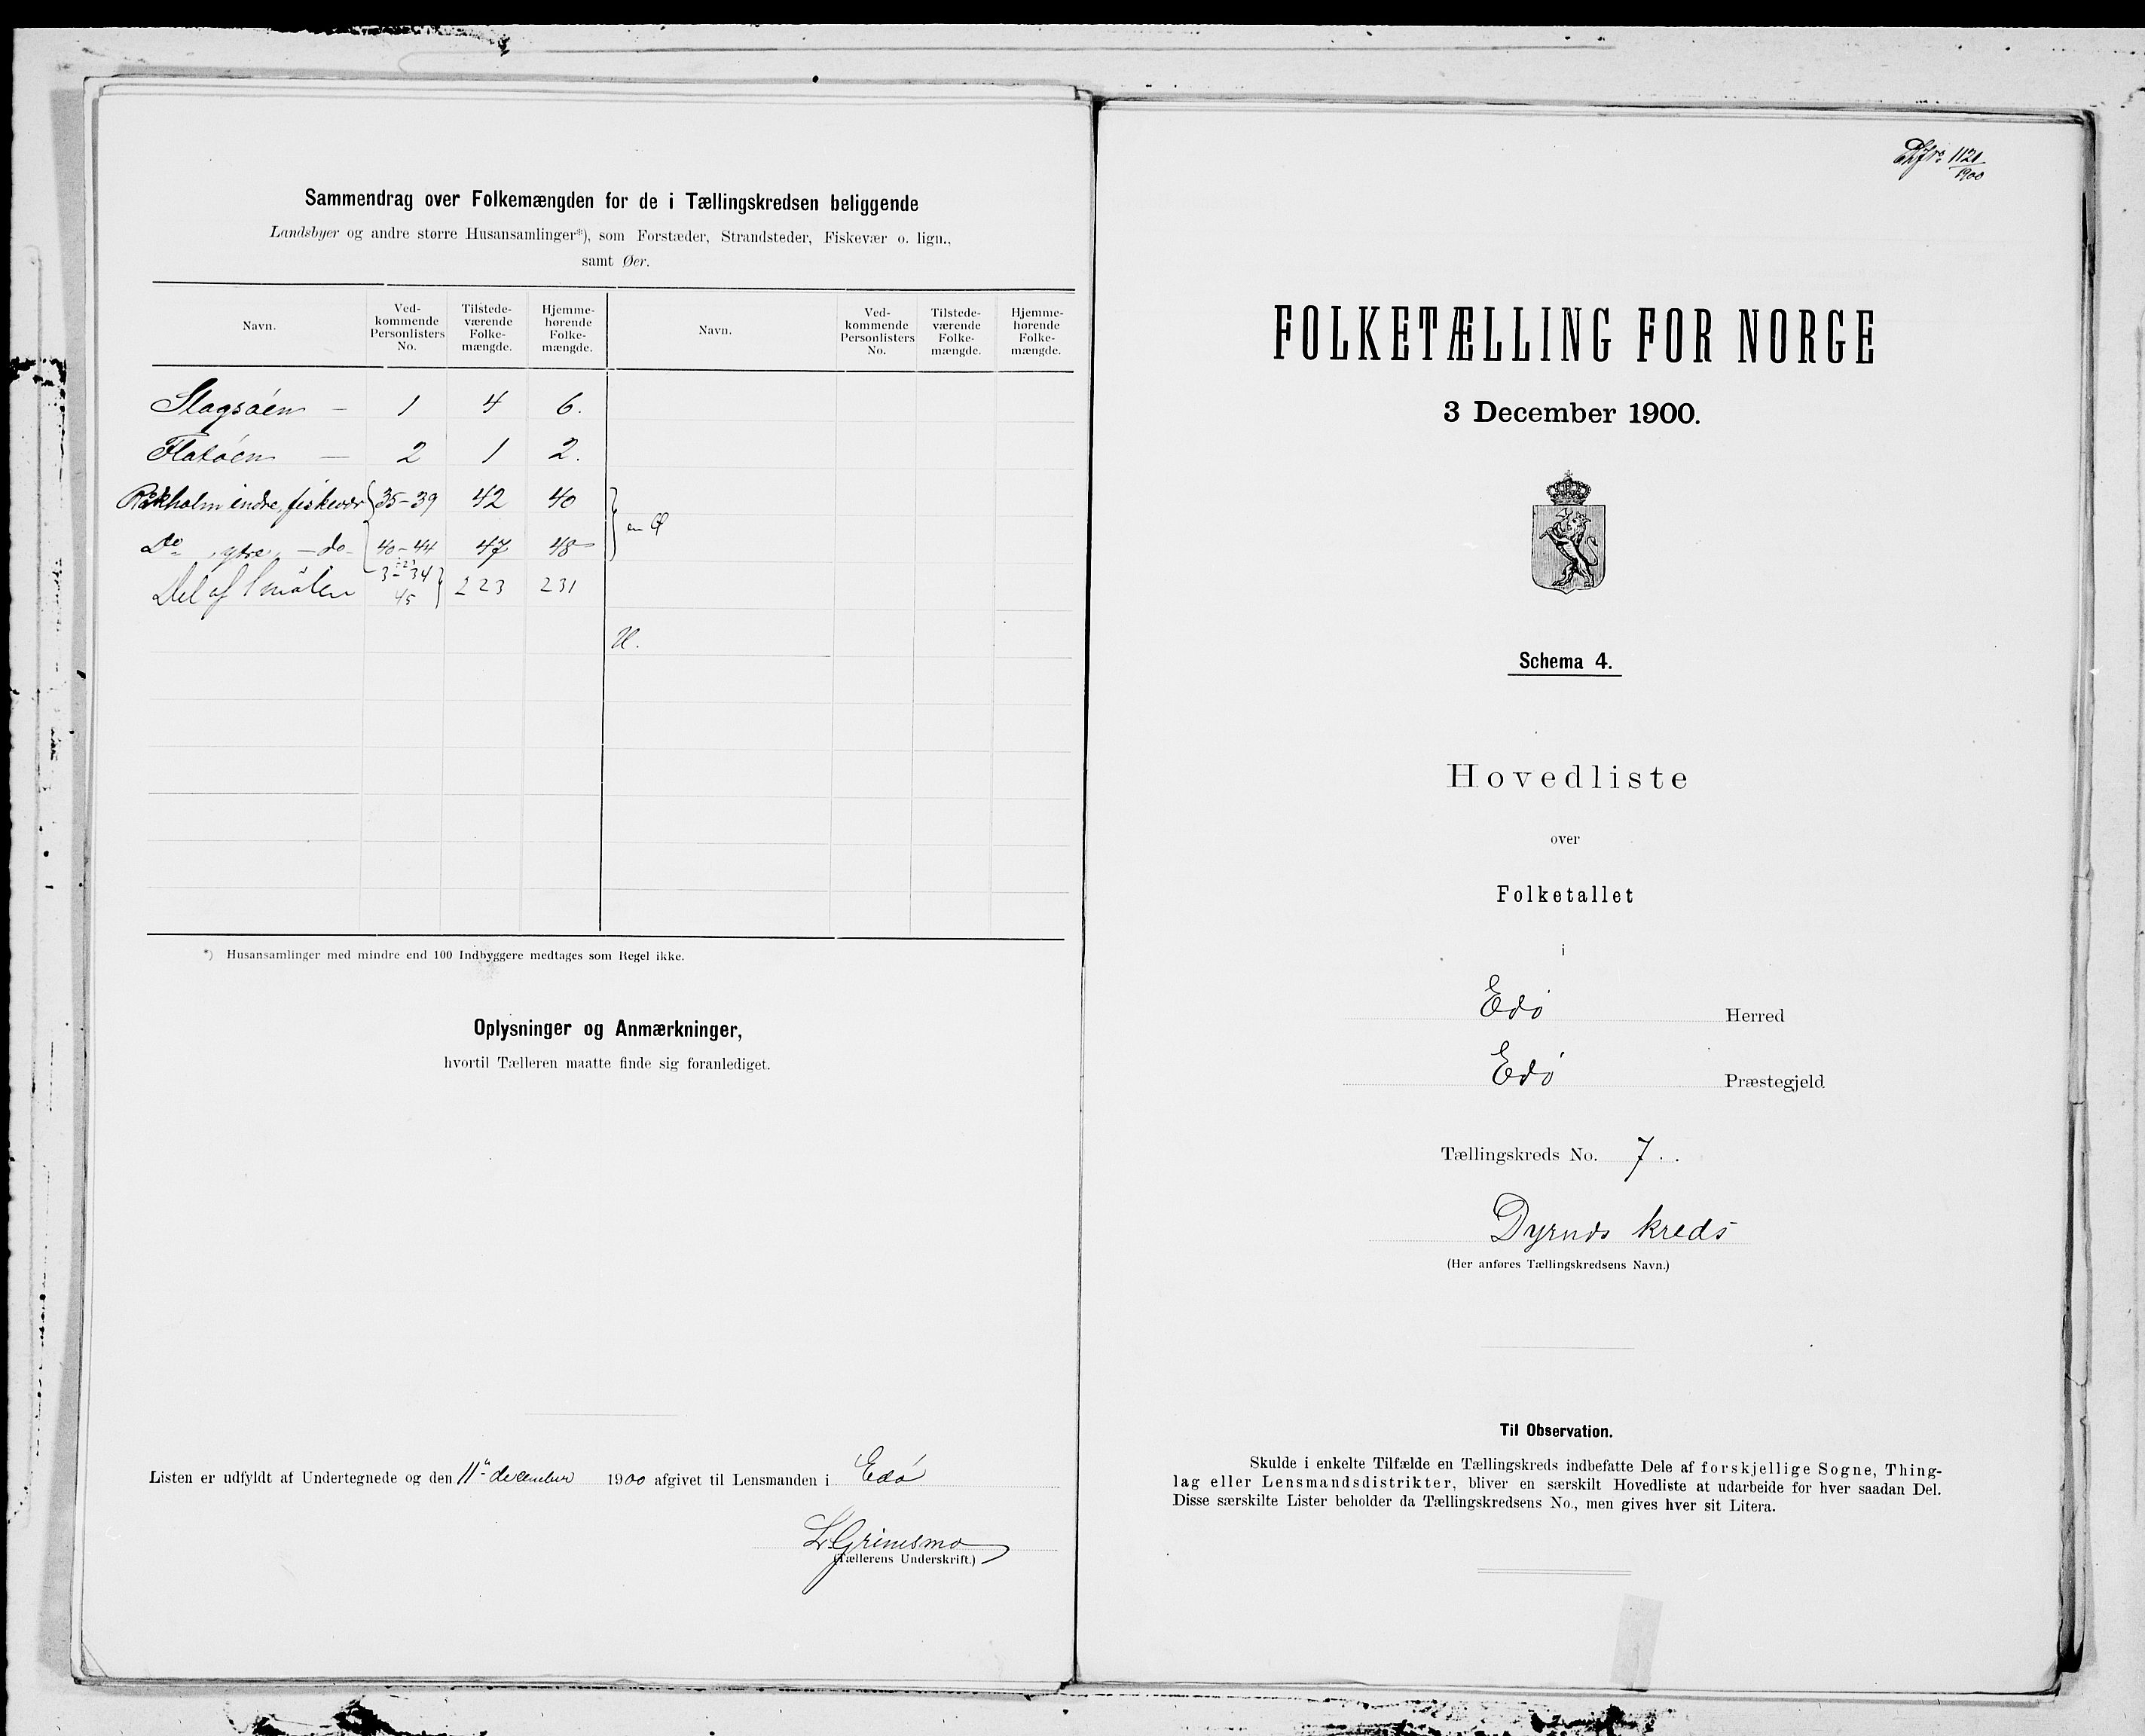 Sammendrag over Folkemængden for de i Tællingskredsen beliggende
Landsbyer og andre større Husansamlinger*), som Forstæder, Strandsteder, Fiskevær o. lign.,
samt Øer.
Navn. Ved-kommende Personlisters No. Tilstede-værende Folke-mængde. Hjemme-hørende Folke-mængde. Navn. Ved-kommende Personlisters No. Tilstede-værende Folke-mængde. Hjemme-hørende Folke-mængde.
Slagsøen — 1 4 6.
Flatøen — 2 1 2.
Rækholm indre, fiskevær 35-39 42 40
en Ø
Do ytre, — do - 40-44 47 48
Del af Smølen 3-34 45 223 231
*) Husansamlinger med mindre end 100 Indbyggere medtages som Regel ikke.
Oplysninger og Anmærkninger,
hvortil Tælleren maatte finde sig foranlediget.
Listen er udfyldt af Undertegnede og den 11 december 1900 afgivet til Lensmanden i Edø
L. Grimsmo
(Tællerens Underskrift.)
1121
1900
FOLKETÆLLING FOR NORGE
3 December 1900.
Schema 4.
Hovedliste
over
Folketallet
i
Edø Herred
Edø Præstegjeld
Tællingskreds No. 7.
Dyrnds kreds
(Her anføres Tællingskredsens Navn.)
Til Observation.
Skulde i enkelte Tilfælde en Tællingskreds indbefatte Dele af forskjellige Sogne, Thing-
lag eller Lensmandsdistrikter, bliver en særskilt Hovedliste at udarbeide for hver saadan Del.
Disse særskilte Lister beholder da Tællingskredsens No., men gives hver sit Litera.